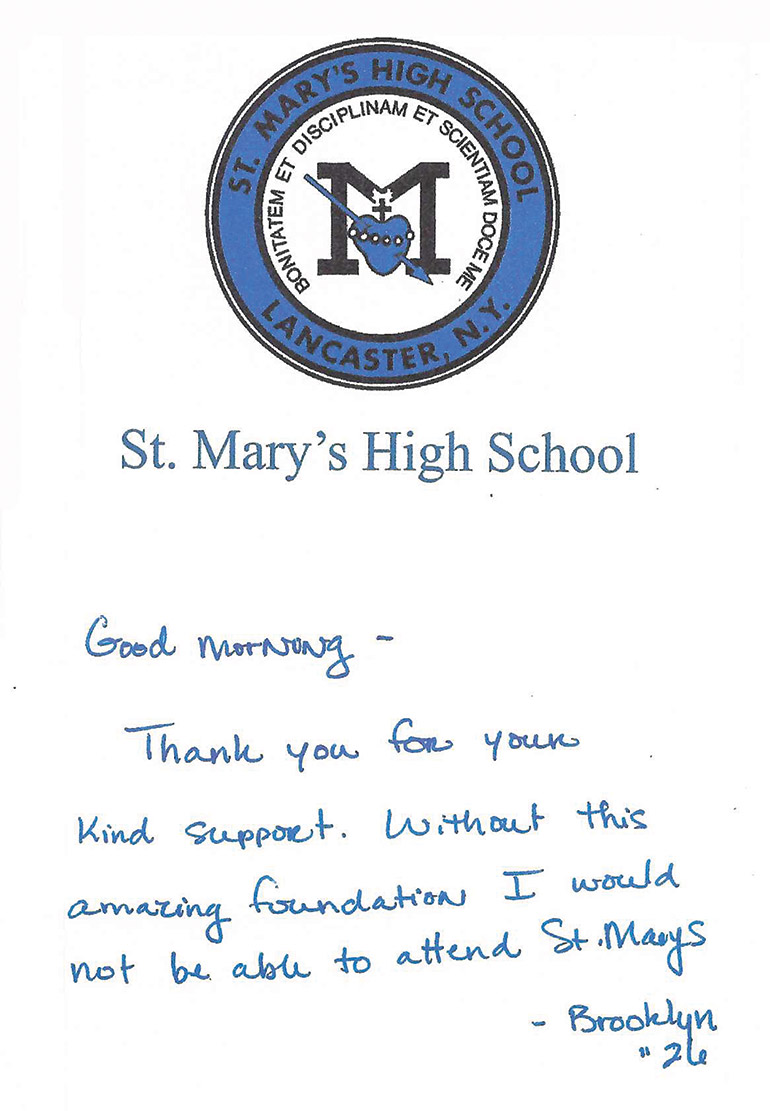 ST. MARY'S HIGH SCHOOL
BONITATEM ET DISCIPLINAM ET SCIENTIAM DOCE ME
M
LANCASTER, N.Y.
St. Mary's High School
Good morning -
Thank you for your
Kind support. Without this
amazing foundation I would
not be able to attend St. Marys
- Brooklyn
"26